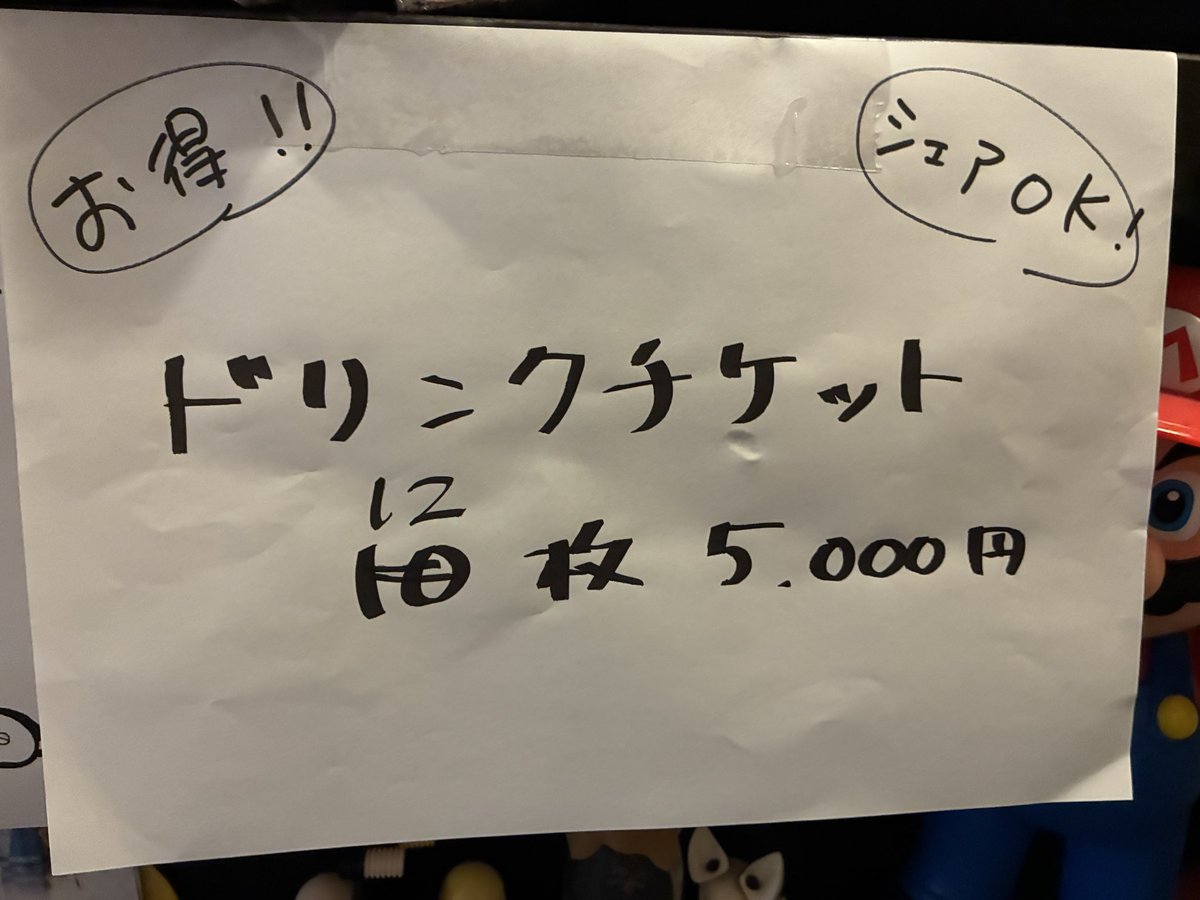 お得!!
シェアOK!
ドリンクチケット
12
10枚 5.000円